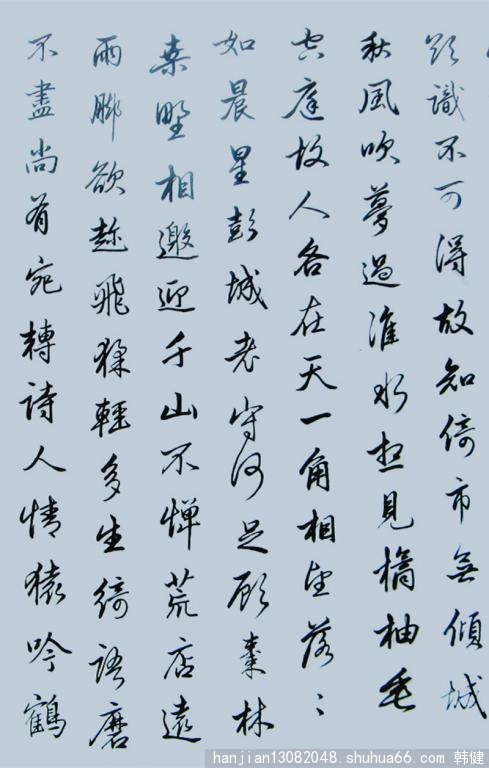 欲識不可得故知倚市無傾城
秋風吹夢過淮水想見橘柚垂
空庭故人各在天一角相望落〻
如晨星彭城老守何足顧棗林
桑野相邀迎千山不憚荒店遠
兩腳欲趁飛猱輕多生綺語磨
不盡尚有宛轉詩人情猿吟鶴
hanjian13082048.shuhua66.com 韩健